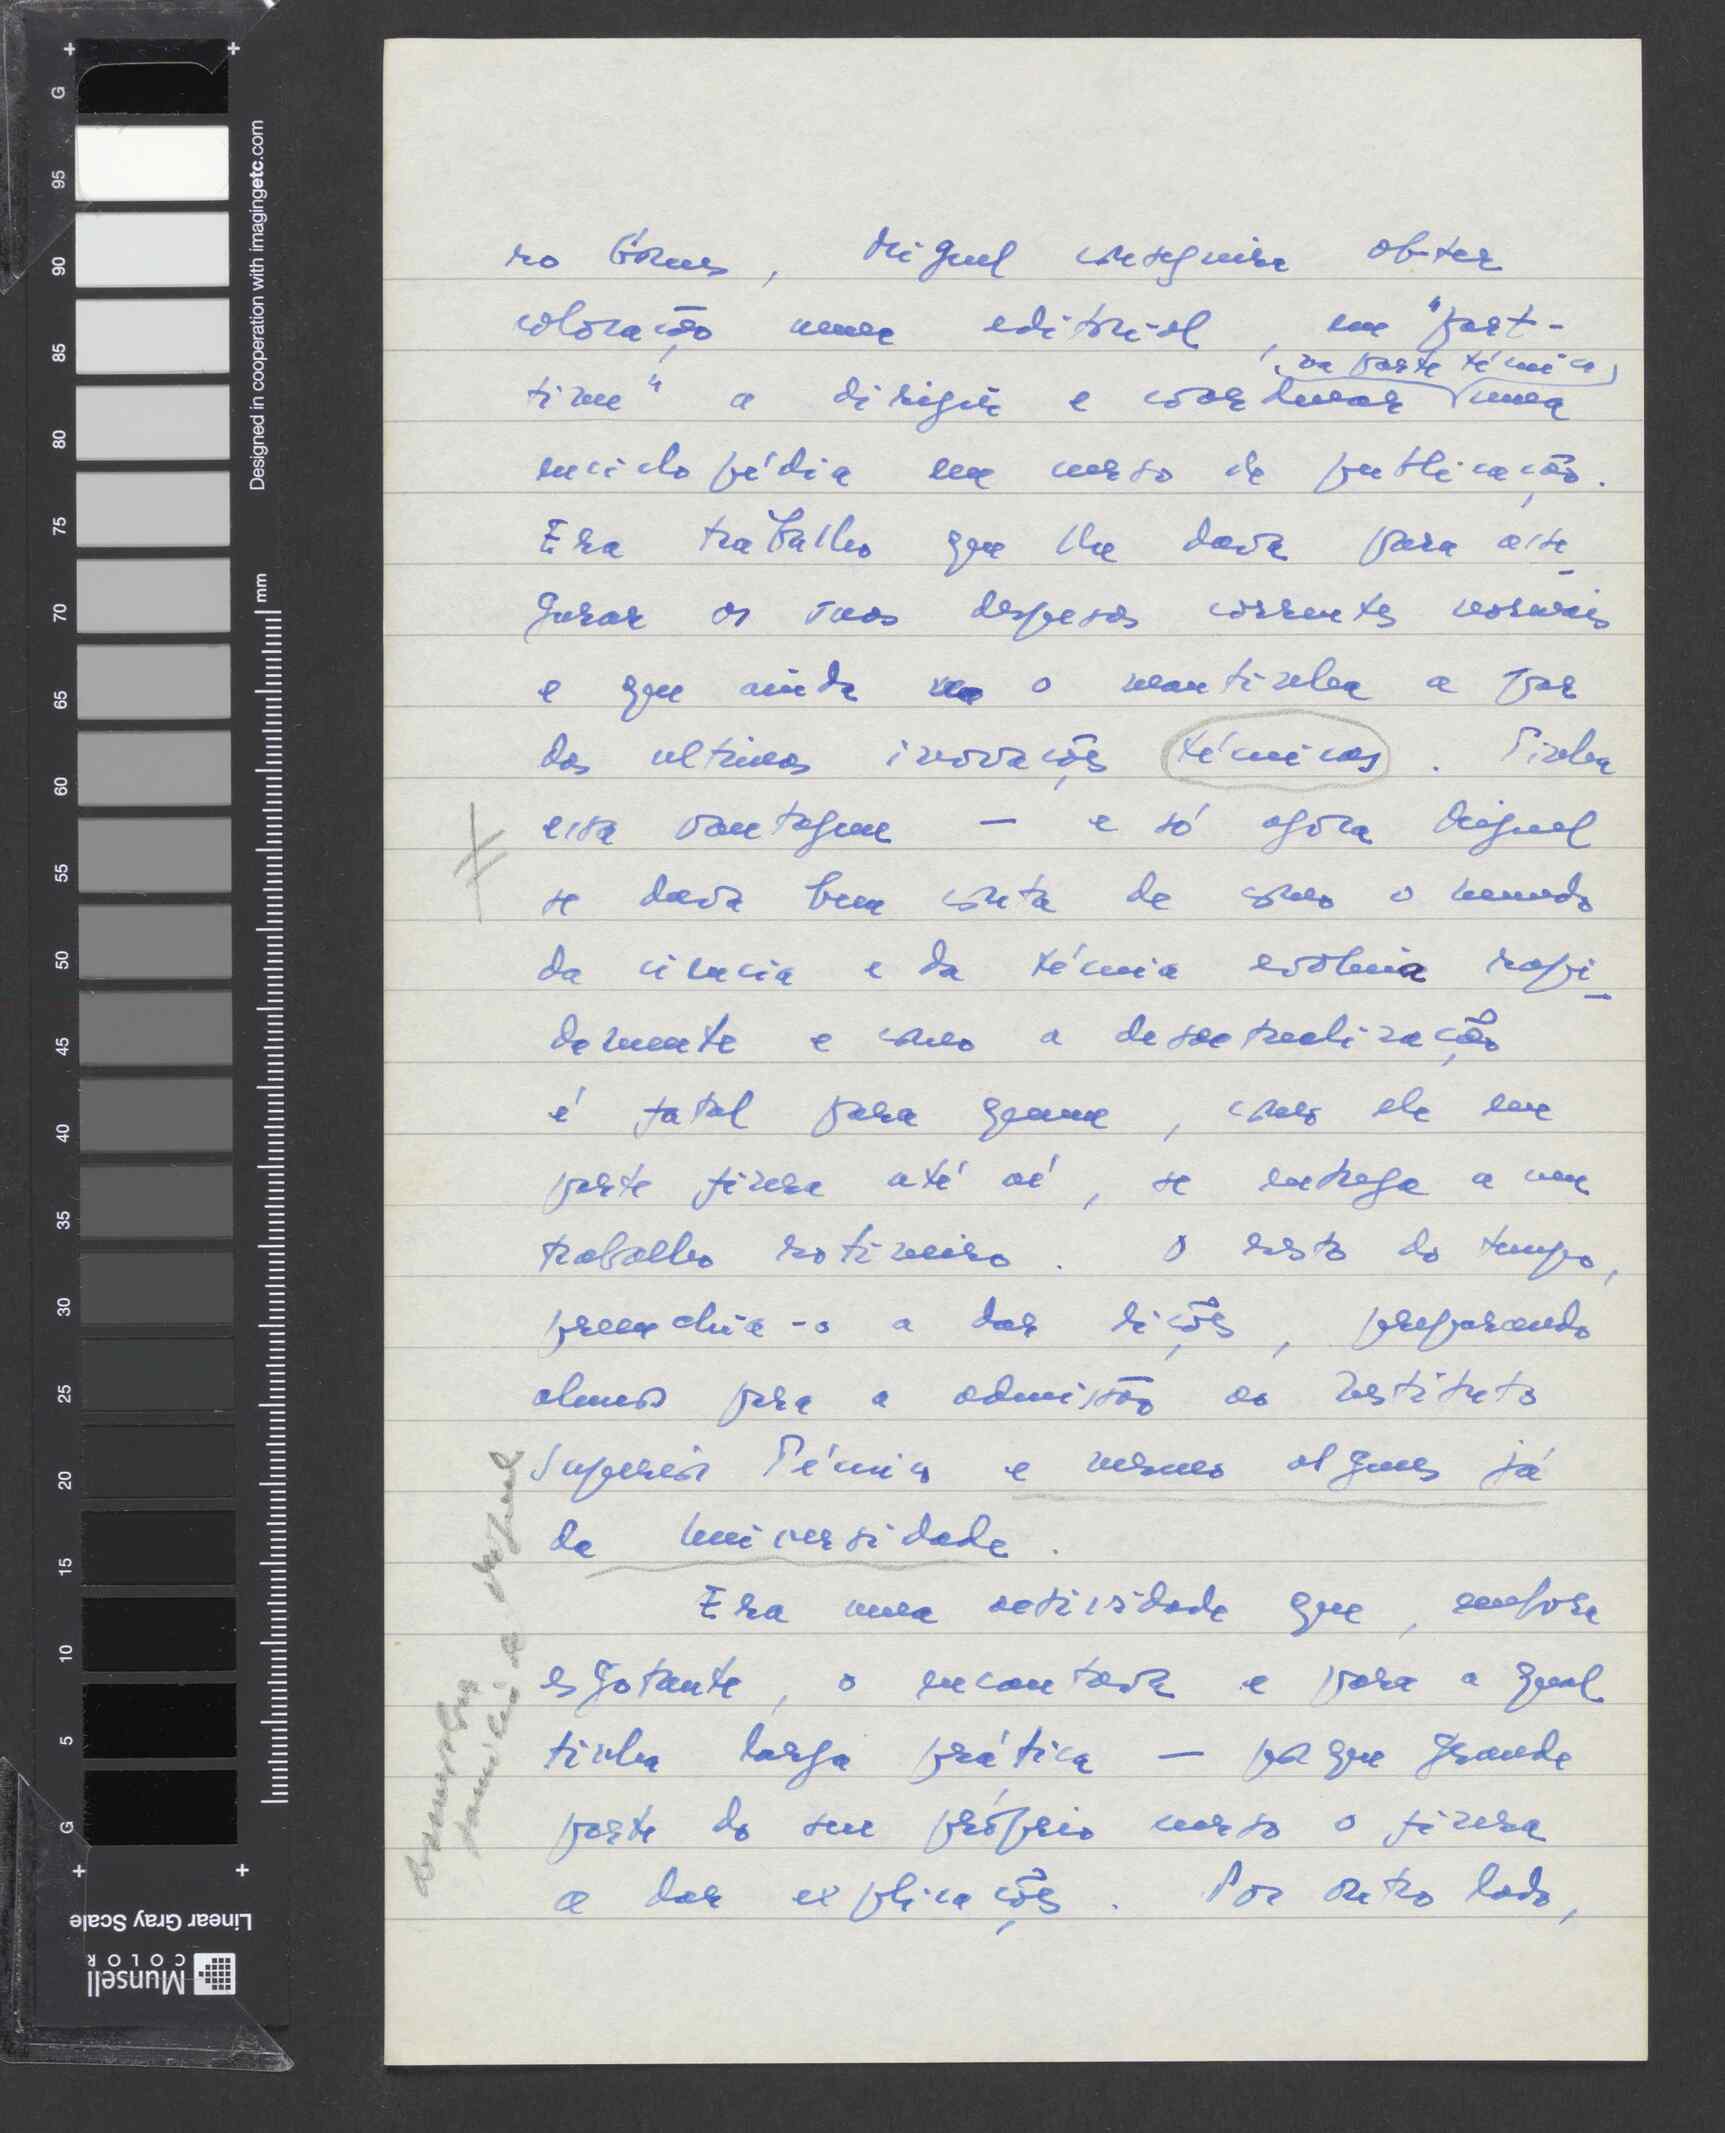 ro Gomes, Miguel conseguira obter
colocação numa editorial, em "part-
time" a dirigir e coordenar uma
na parte técnica
enciclopédia em curso de publicação.
Era trabalho que lhe dava para asse
gurar as suas despesas correntes normais
e que ainda o mantinha a par
das ultimas inovações técnicas. Tinha
essa vantagem — e só agora Miguel
se dava bem conta de como o mundo
da ciencia e da técnica evoluia rapi-
damente e como a desactualização
é fatal para quem, como ele em
parte fizera até aí, se entrega a um
trabalho rotineiro. O resto do tempo,
preenchia-o a dar lições, preparando
alunos para a admissão ao Instituto
Superior Técnico e mesmo alguns já
da Universidade.
Era uma actividade que, embora
esgotante, o encantava e para a qual
tinha larga prática — porque grande
parte do seu próprio curso o fizera
a dar explicações. Por outro lado,
Designed in cooperation with imagingetc.com
mm
G
95
90
85
80
75
70
65
60
55
50
45
40
35
30
25
20
15
10
5
G
Linear Gray Scale
Munsell
COLOR